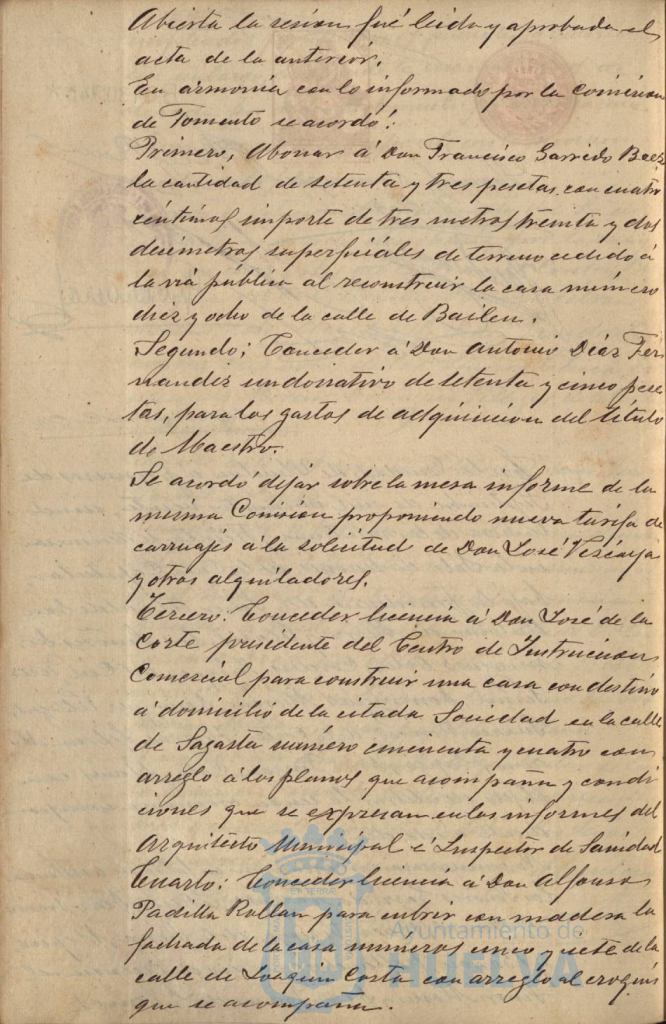 Abierta la sesion fué leida y aprobada el
acta de la anterior.
En armonia con lo informado por la Comision
de Fomento se acordó:
Primero, Abonar á Don Francisco Garrido Baez
la cantidad de setenta y tres pesetas con cuatro
céntimos importe de tres metros treinta y dos
decímetros superficiales de terreno cedido á
la via pública al reconstruir la casa número
diez y ocho de la calle de Bailen.
Segundo; Conceder á Don Antonio Diaz Fer
nandez un donativo de setenta y cinco pese
tas, para los gastos de adquisicion del título
de Maestro.
Se acordó dejar sobre la mesa informe de la
misma Comision proponiendo nueva tarifa de
carruajes á la solicitud de Don José Vizcaya
y otros alquiladores.
Tercero: Conceder licencia á Don José de la
Corte presidente del Centro de Instruccion
Comercial para construir una casa con destino
á domicilio de la citada Sociedad en la calle
de Sagasta número cincuenta y cuatro con
arreglo á los planos que acompaña y condi
ciones que se expresan en los informes del
Arquitecto Municipal é Inspector de Sanidad
Cuarto: Conceder licencia á Don Alfonso
Padilla Rollan para cubrir con madera la
fachada de la casa números cinco y siete de la
calle de Joaquin Costa con arreglo al croquis
que se acompaña.
Ayuntamiento de
HUELVA